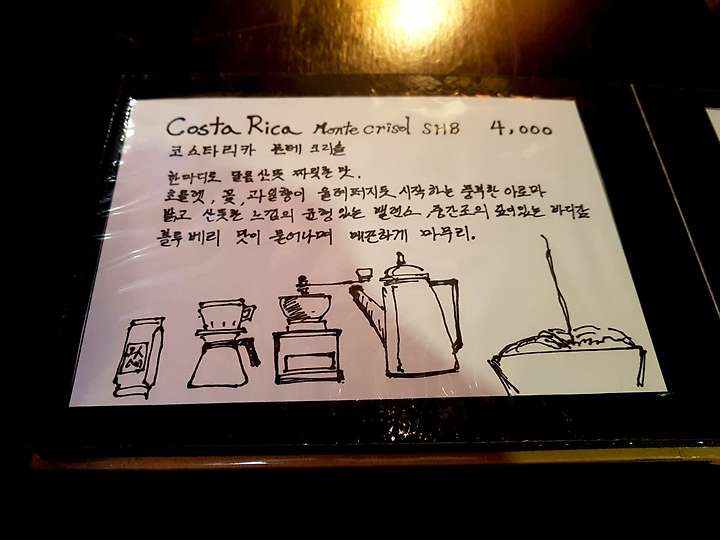 Costa Rica Monte crisol SHB 4,000
코스타리카 몬테 크리솔
한마디로 달콤 산뜻 짜릿한 맛.
초콜렛, 꽃, 과일향이 울려퍼지듯 시작하는 풍부한 아로마
밝고 산뜻한 느낌의 균형 있는 밸런스, 중간조의 깊이있는 바디감
블루베리 맛이 묻어나며 매끈하게 마무리.